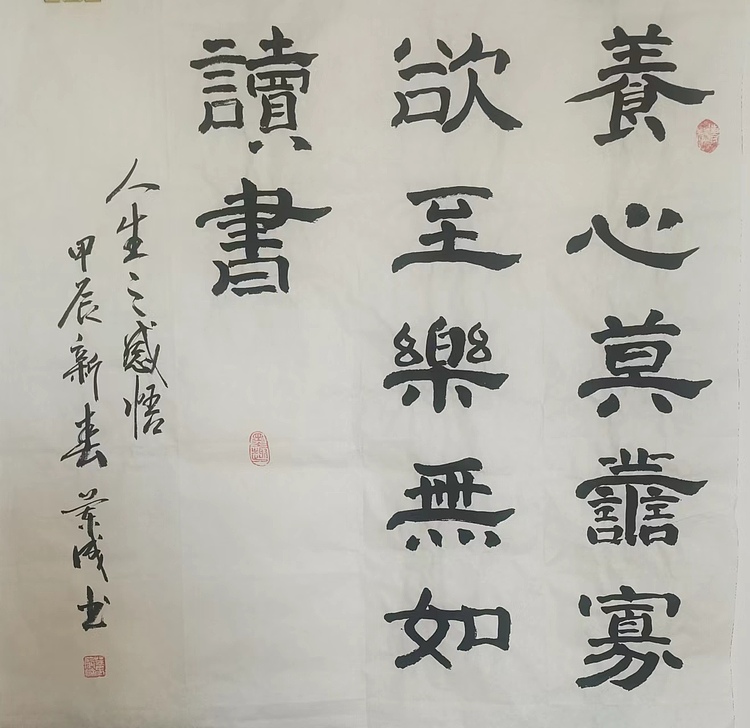 養心莫譱寡
欲至樂無如
讀書
人生之感悟
甲辰新春 成书